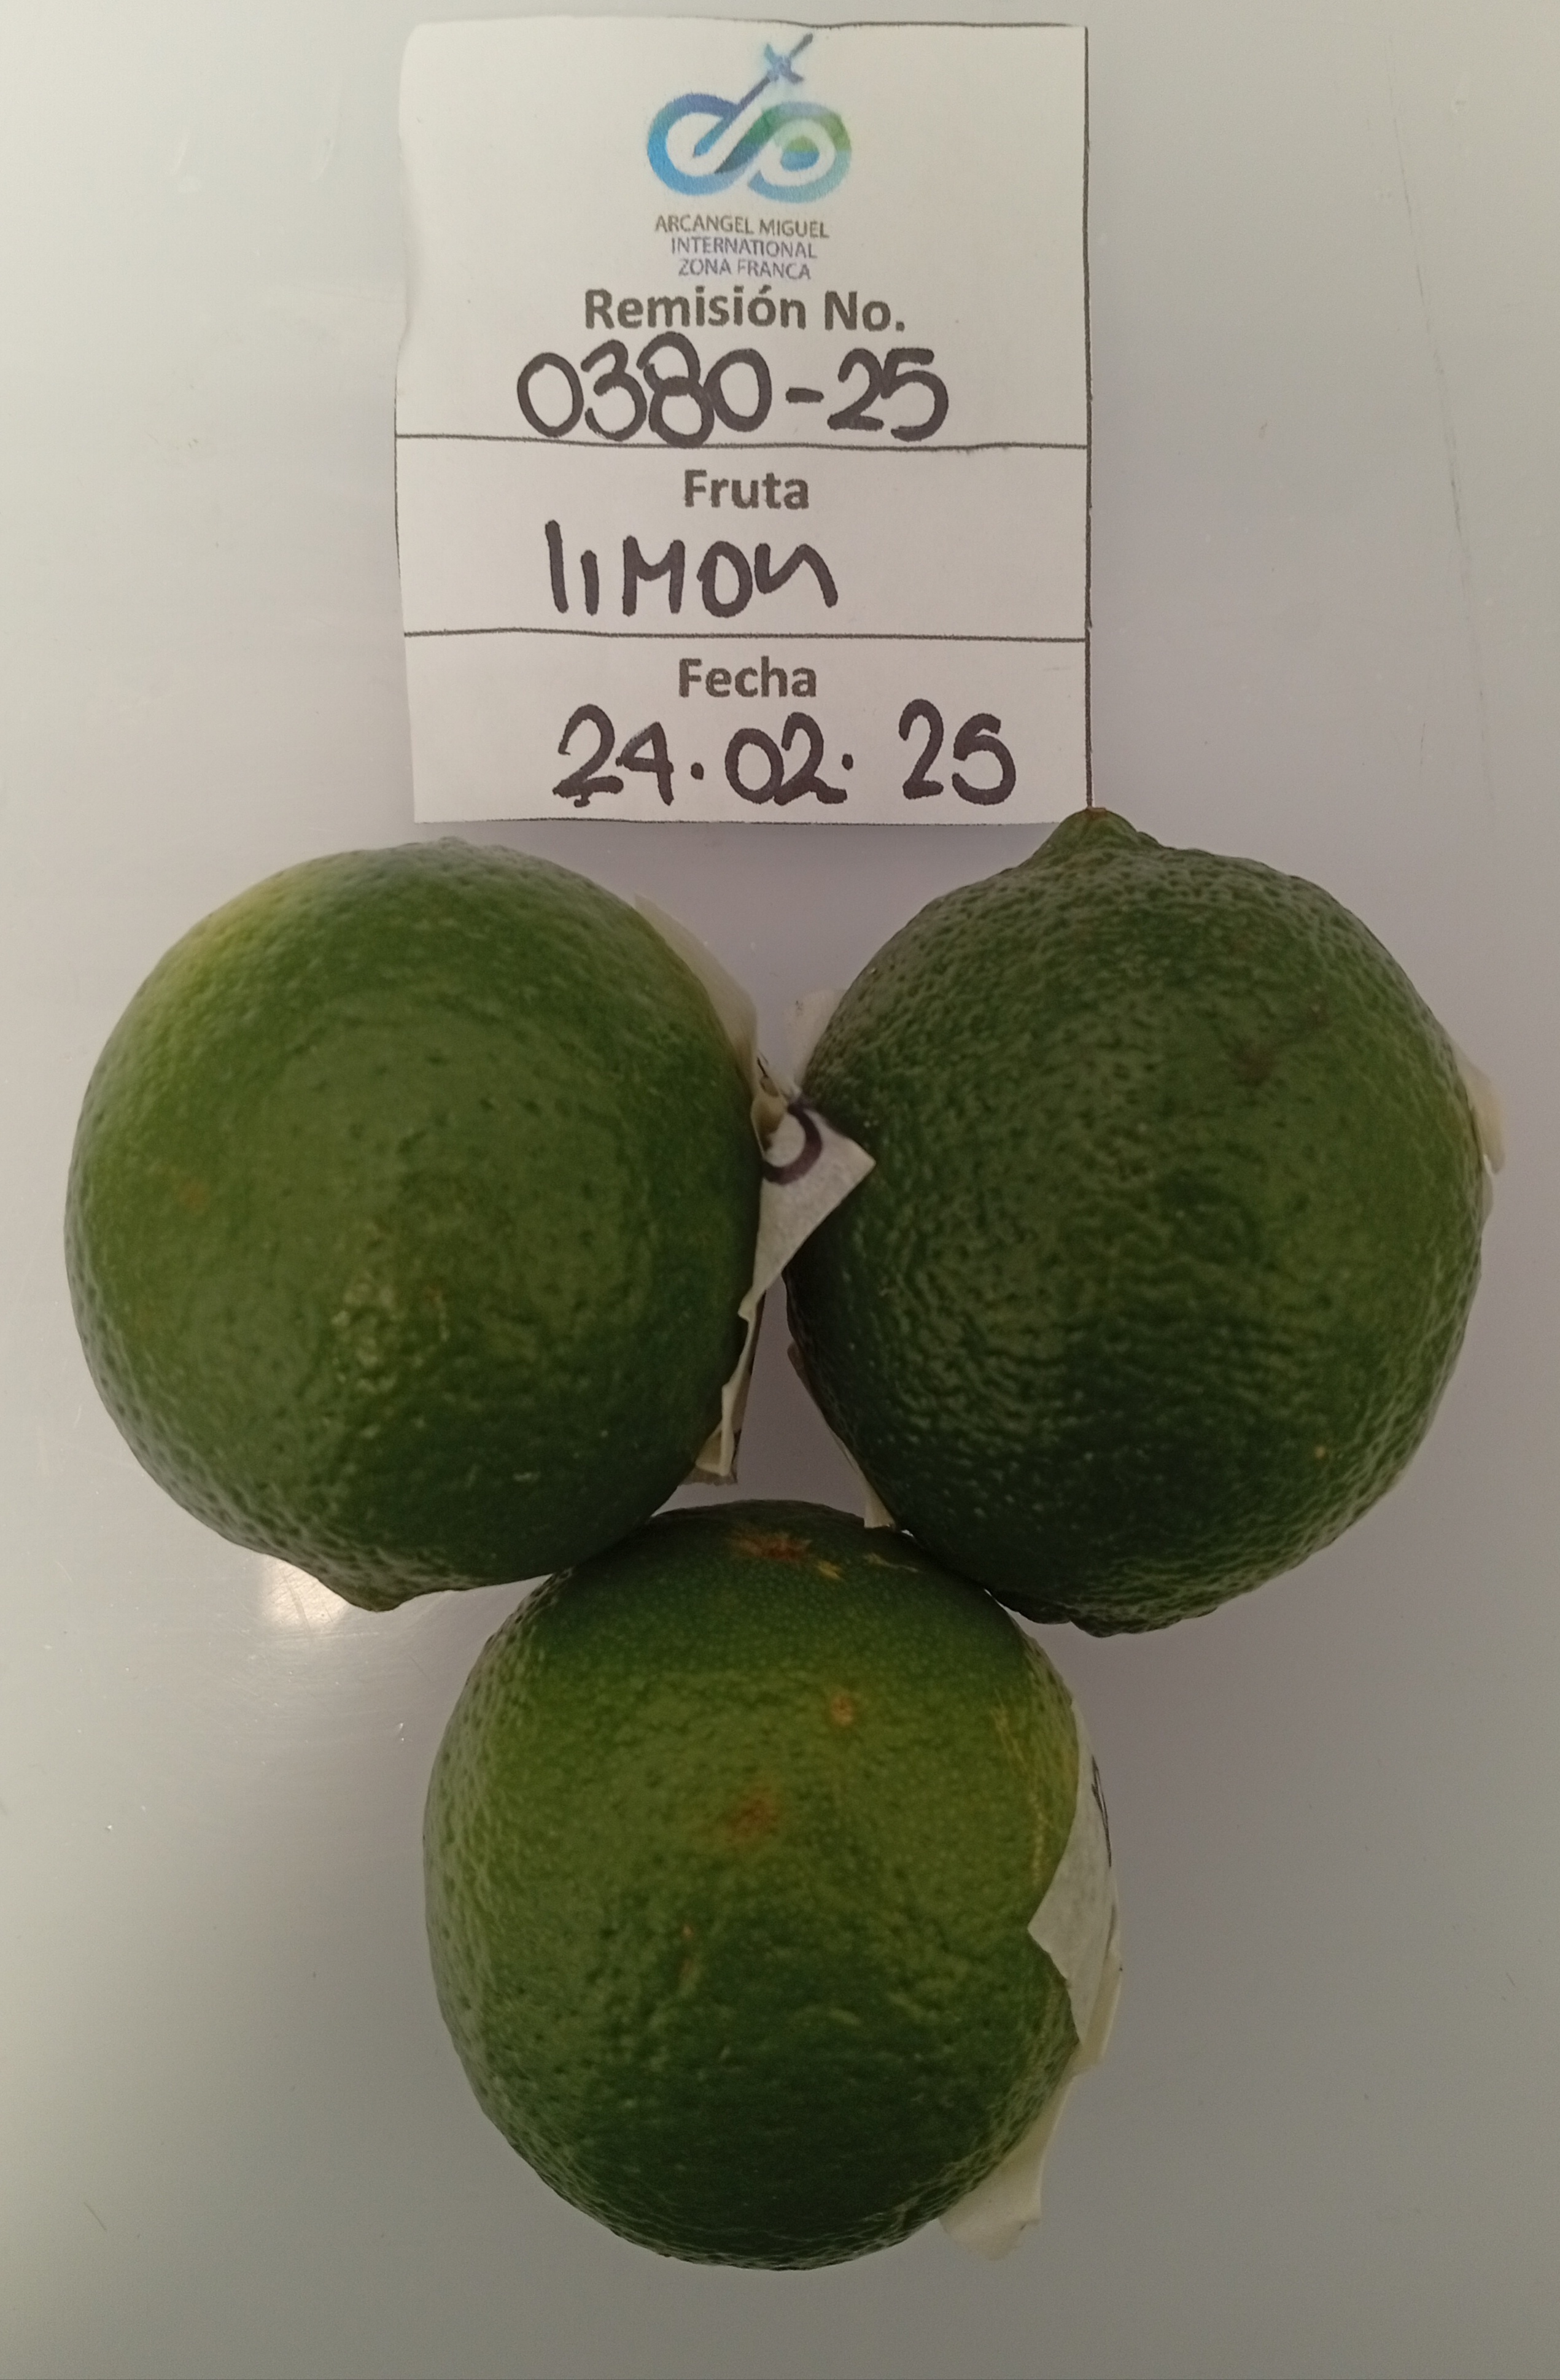 ARCANGEL MIGUEL
INTERNATIONAL
ZONA FRANCA
Remisión No.
0380-25
Fruta
limon
Fecha
24.02.25